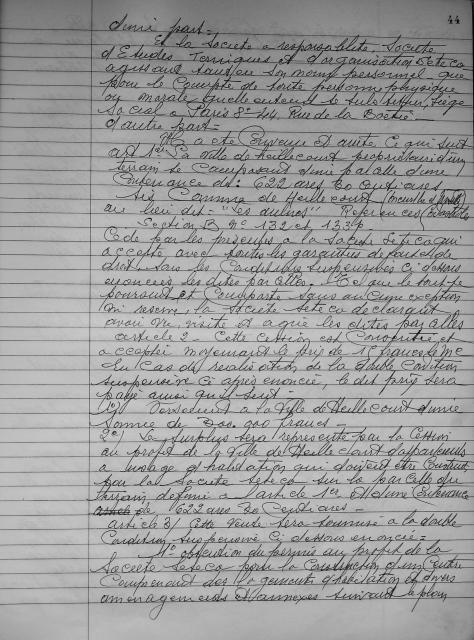 44
d'une part -
Et la Société a responsabilité, Société
d'Etudes Techniques et d'organisation Seteco
agissant tant en son nom personnel que
pour le Compte de toute personne physique
ou morale quelle entend se substituer, siège
Social a Paris 8e 44 Rue de la Boétie
d'autre part -
Il a été Convenu et arrêté Ce qui suit
art 1er La ville de Heillecourt propriétaire d'un
terrain se Composant d'une parcelle d'une
Contenance de : 622 ares 20 Centiares
Sis Commune de Heillecourt
au lieu dit - "Les aulnes" - Références
Section B no 132 et 133
Cède par les présentes a la Société Seteco qui
accepte avec toutes les garanties de fait et de
droit, sous les Conditions suspensives Ci dessous
énoncées les dites parcelles. Tel que le tout se
poursuit et Comporte sans aucune exception
ni réserve, la Société Seteco déclarant
avoir vu, visité et agréé les dites parcelles
article 2 - Cette Cession est Consentie et
acceptée moyennant le prix de francs le m2
En Cas de réalisation de la double Condition
suspensive Ci après énoncée, le dit prix sera
payé ainsi qu'il suit -
1o) Versement a la Ville de Heillecourt d'une
Somme de 200.000 francs -
2o) Le Surplus sera représenté par la Cession
au profit de la Ville de Heillecourt d'appartements
a usage d'habitation qui doivent être Construits
par la Société Seteco sur la parcelle du
terrain défini a l'article 1er d'une Contenance
de 622 ares 20 Centiares -
article 3/ Cette Vente sera soumise a la double
Condition suspensive Ci dessous énoncée =
1o obtention du permis au profit de la
Société Seteco pour la Construction d'un Centre
Comprenant des logements d'habitation et divers
aménagements et annexes suivant le plan